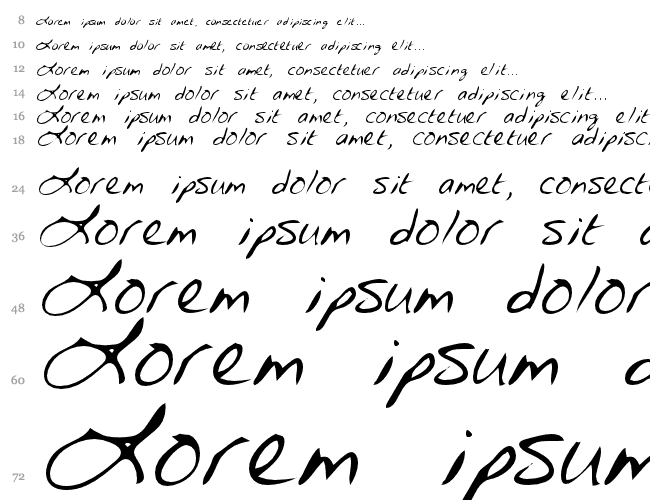 8 Lorem ipsum dolor sit amet, consectetuer adipiscing elit...
10 Lorem ipsum dolor sit amet, consectetuer adipiscing elit...
12 Lorem ipsum dolor sit amet, consectetuer adipiscing elit...
14 Lorem ipsum dolor sit amet, consectetuer adipiscing elit...
16 Lorem ipsum dolor sit amet, consectetuer adipiscing elit
18 Lorem ipsum dolor sit amet, consectetuer adipisc
24 Lorem ipsum dolor sit amet, consect
36 Lorem ipsum dolor sit
48 Lorem ipsum dolor
60 Lorem ipsum d
72 Lorem ipsum